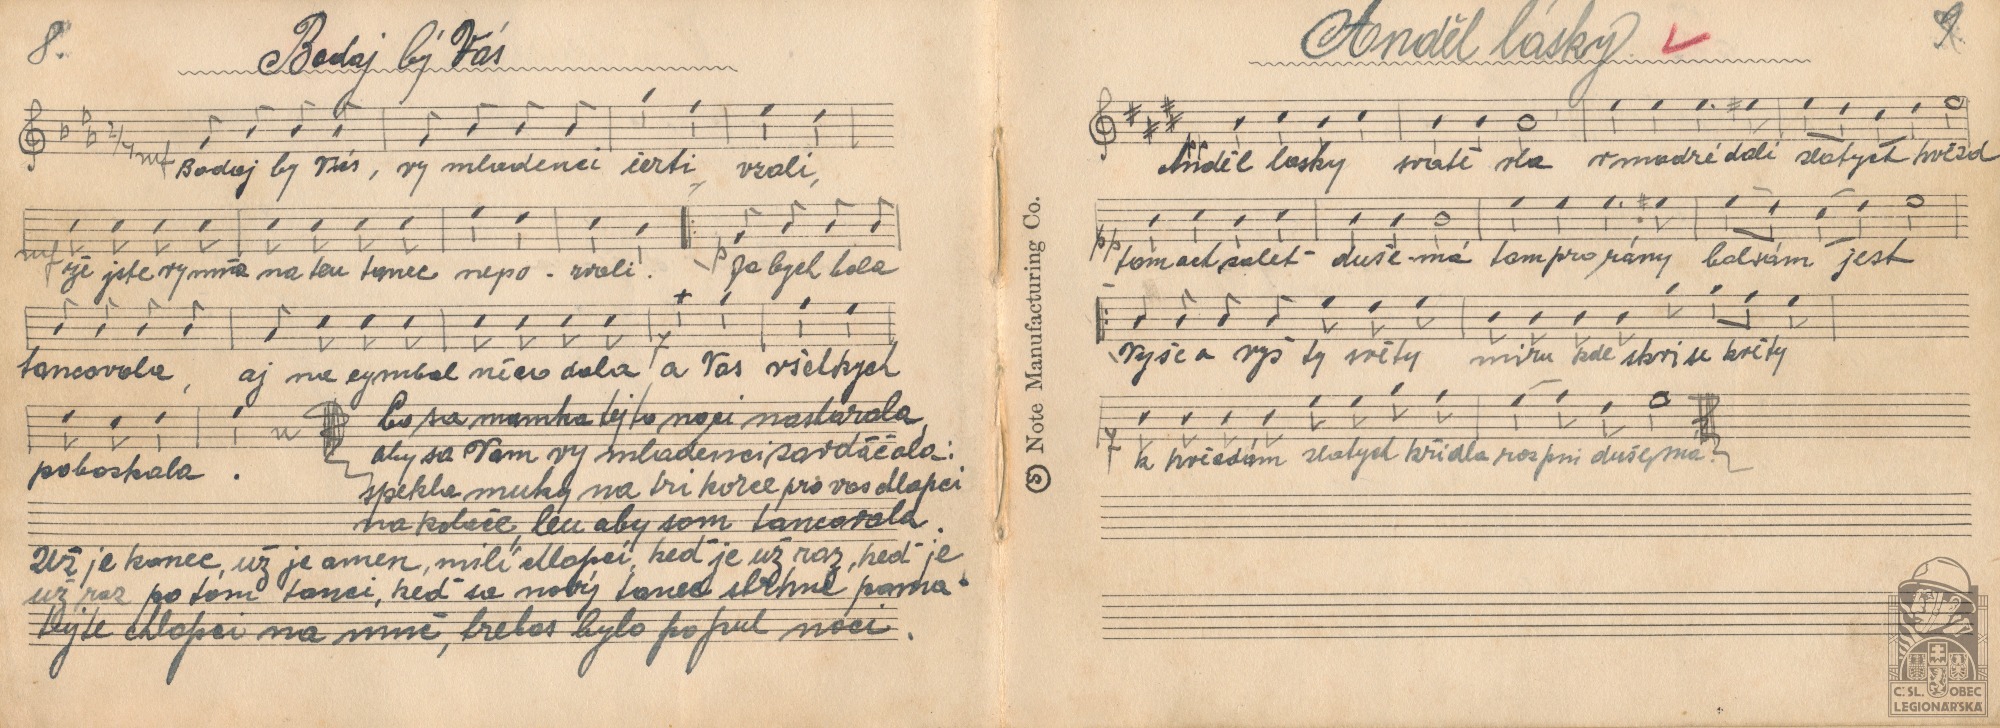 8.
Bodaj by Vás
mf Bodaj by Vás, vy mladenci čerti vzali,
mf že jste vy mňa na ten tanec nepo - zvali. p Ja bych bola
tancovala, aj na cymbal něco dala f a Vas všelkych
poboskala.
Co sa mamka tejto noci nastarala,
aby sa Vam vy mladenci zavděčala:
spekla muky na tri korce pro vas chlapci
na koláče, len aby som tancovala.
Už je konec, už je amen, milí chlapci, keď je už raz, keď je
už raz po tom tanci, keď sa nový tanec strhne pama-
tujte chlapci na mně, trebas bylo po pul noci.
Note Manufacturing Co.
Anděl lásky
9.
Anděl lasky svatě vla v modré dali zlatych hvězd
pp tom ach zalet duše má tam pro rány balsám jest
Vyše a vyš ty světy miru kde skvi se květy
f k hvězdám zlatych křidla rozpni duše má.
Č. SL. OBEC
LEGIONÁŘSKÁ